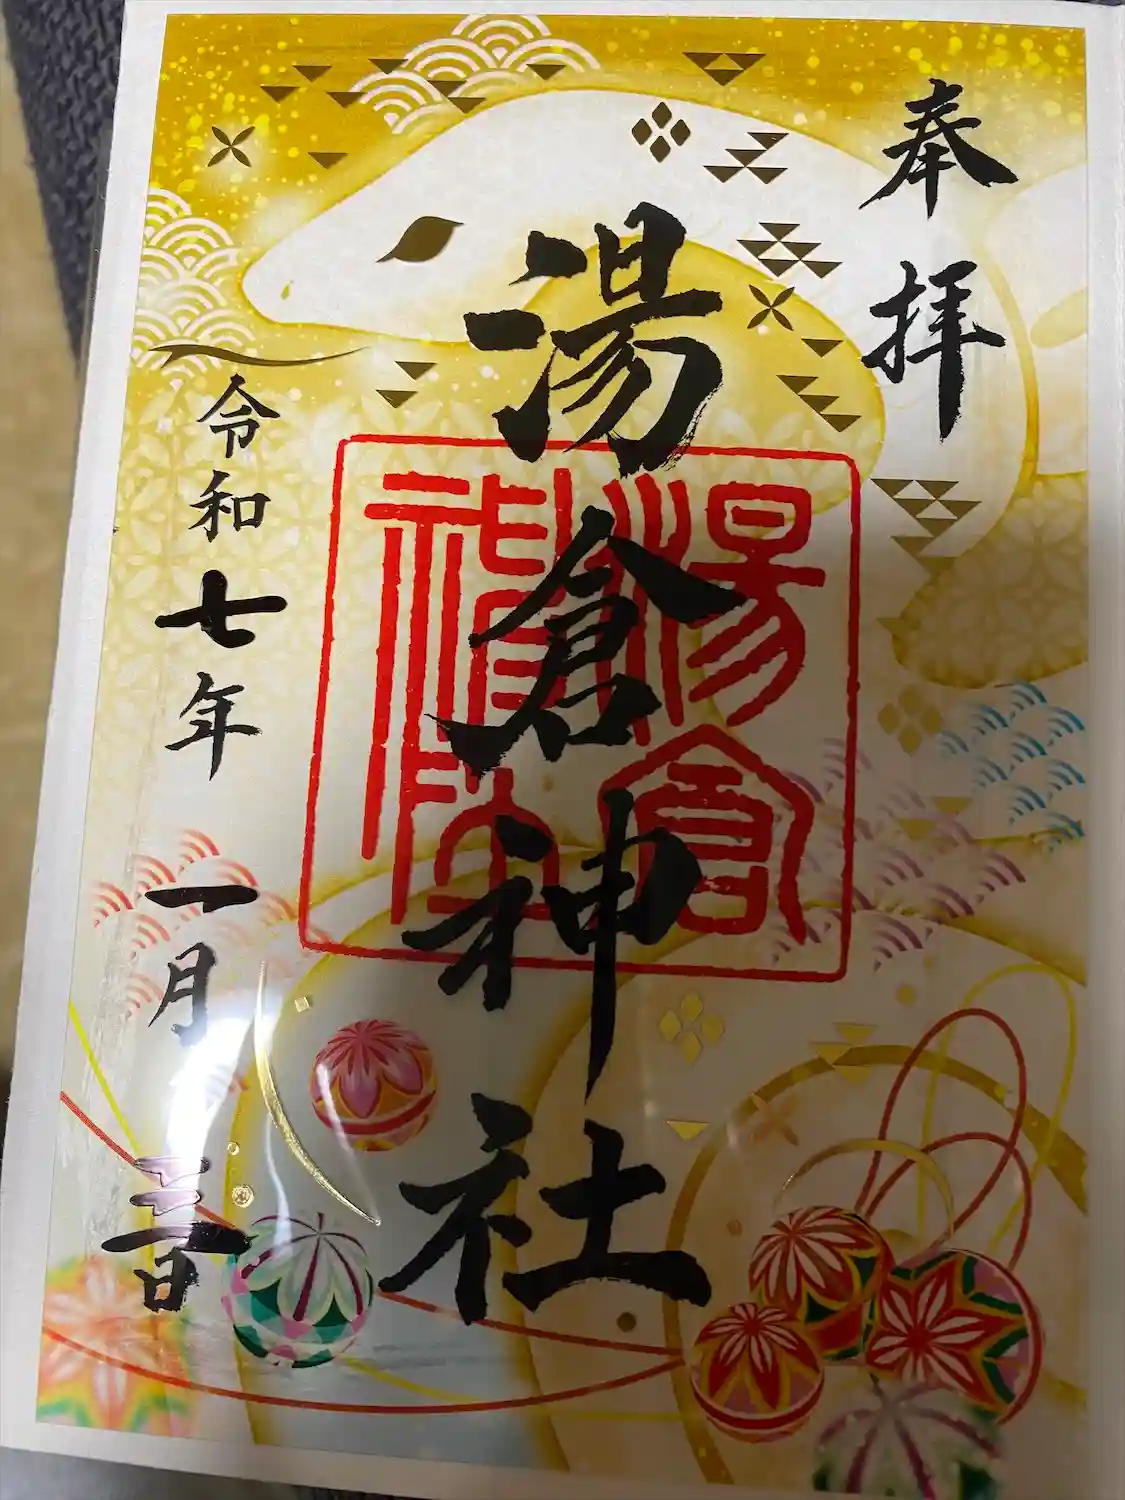 奉拝
湯倉神社
湯倉
令和七年一月三日